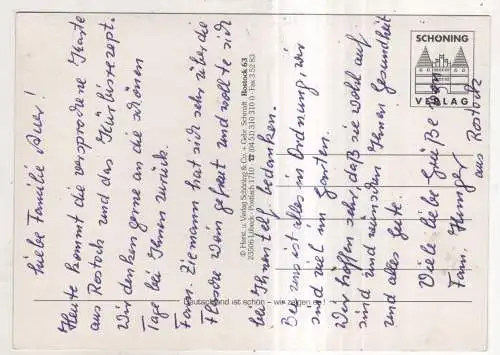 Liebe Familie Auer!
Heute kommt die versprochene Karte
aus Rostock und das Kürbisrezept.
Wir denken gerne an die schönen
Tage bei Ihnen zurück.
Fam. Ziemann hat sich sehr über die
Flasche Wein gefreut und wollte sich
bei Ihnen bedanken.
Bei uns ist alles in Ordnung, wir
sind viel im Garten.
Wir hoffen sehr, daß sie wohl auf
sind und wünschen Ihnen Gesundheit
und alles Gute.
Viele liebe Grüße von
Fam.
aus Rostock
© Horst u. Verlag Schöning & Co. + Gebr. Schmidt · Rostock 63
23506 Lübeck · Postfach 1710 · ☎ (04 51) 310 310 0 · Fax 3 52 83
Deutschland ist schön – wir zeigen es!
SCHÖNING
VERLAG